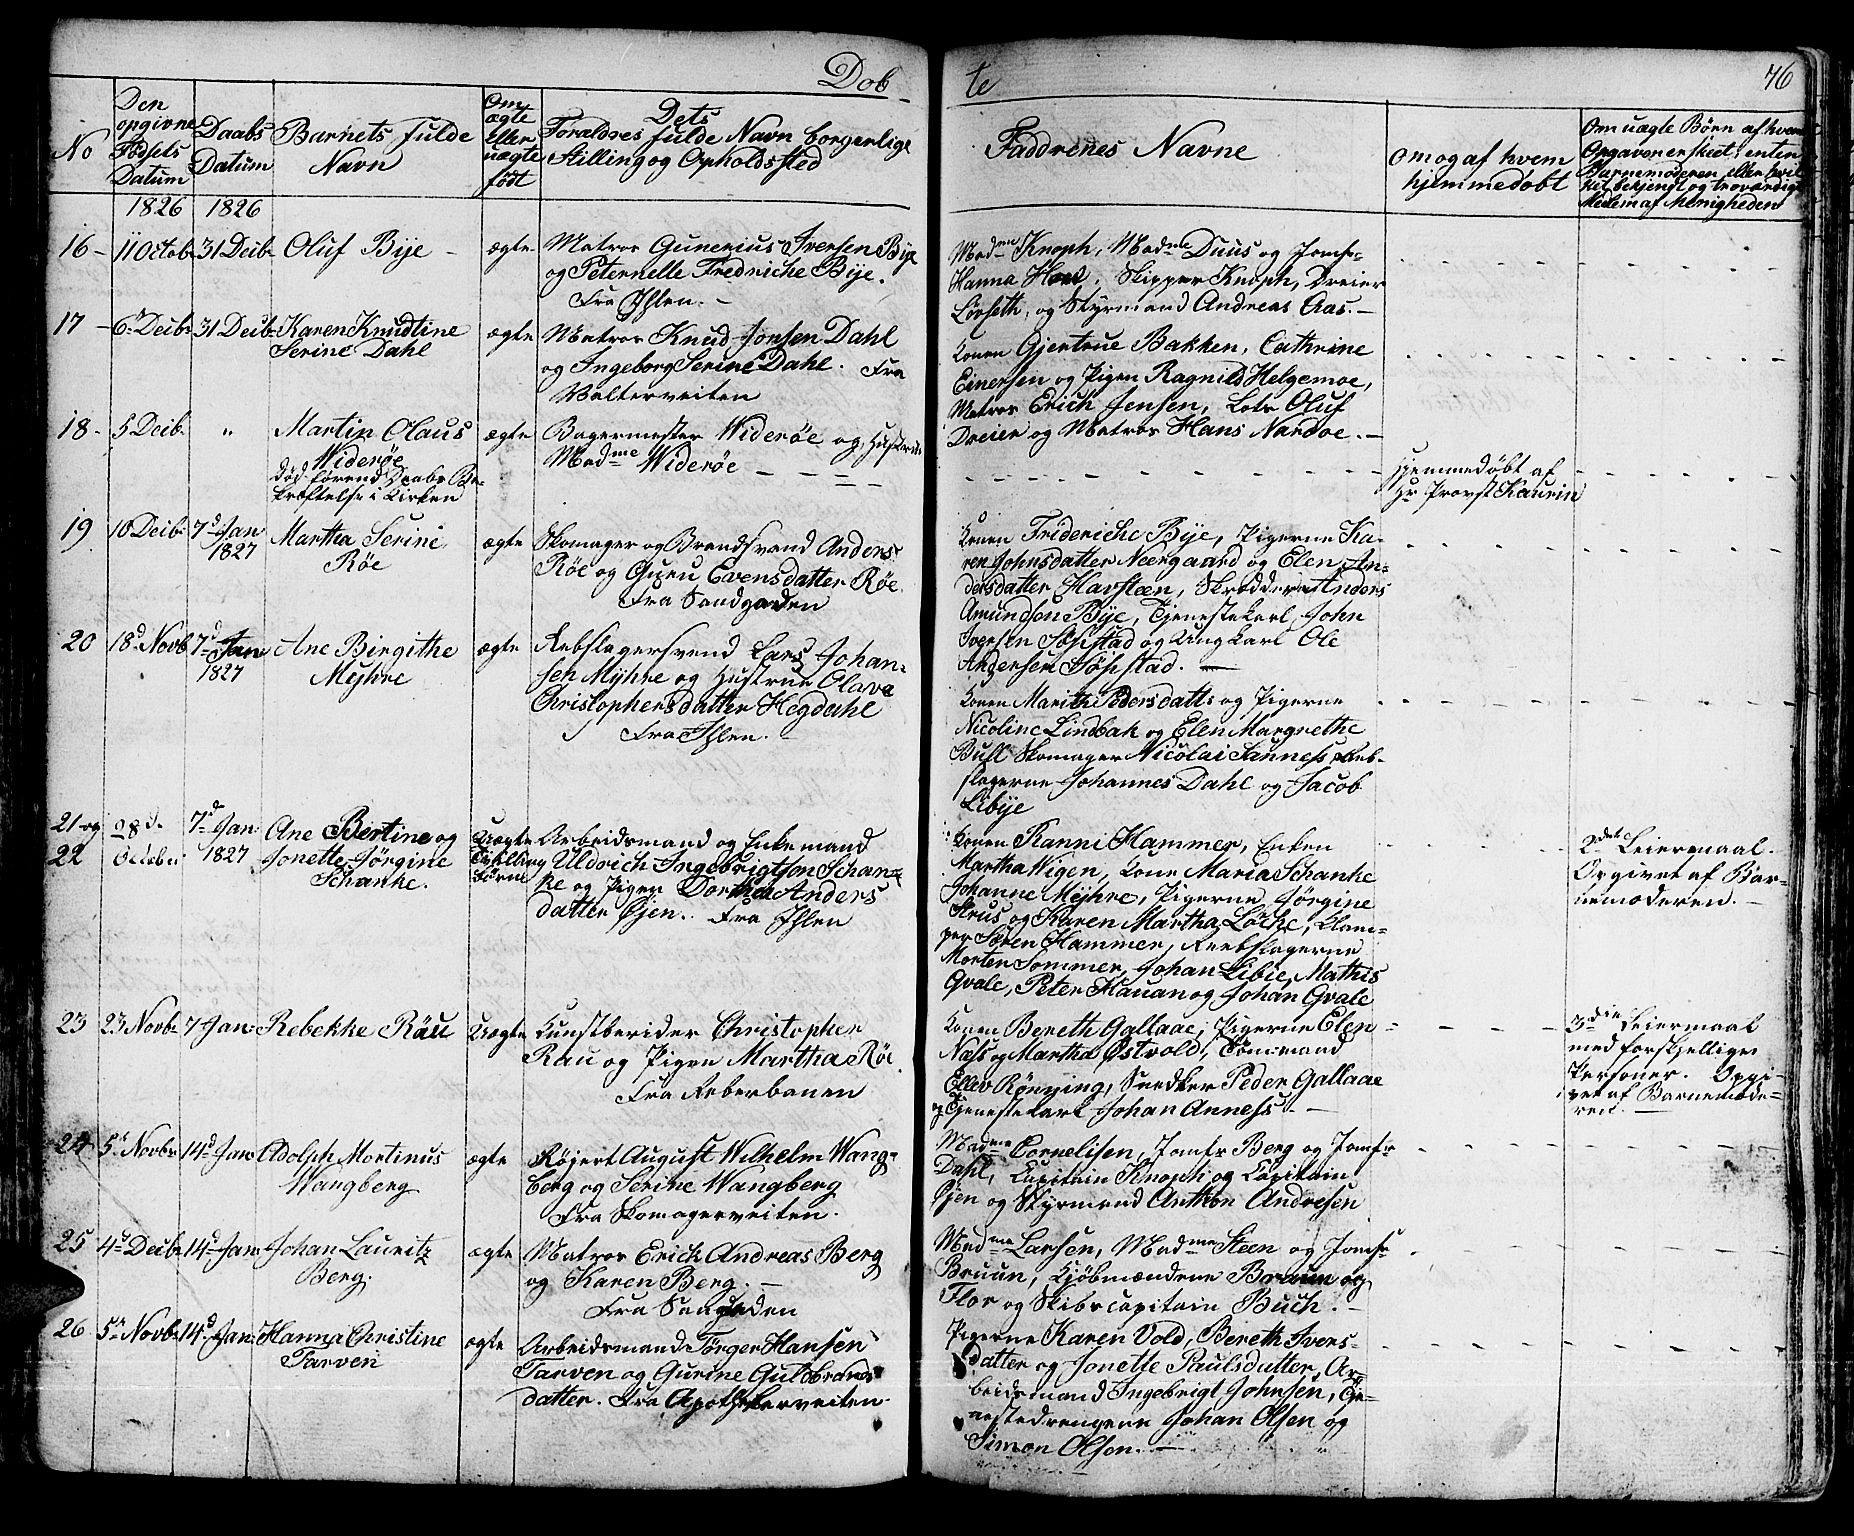 Døb
te
76
No
Den
opgivne
Fødsels
Datum
Daabs
Datum
Barnets fulde
Navn
Om
ægte
eller
uægte
født
Dets
Forældres fulde Navn borgerlige
Stilling og Opholdssted
Faddrenes Navne
om og af hvem
hjemmedøbt
Om uægte Børn af hvem
Opgaven er skeet, enten
Barnemoderen eller hvil-
ket bekjendt og troværdigt
Medlem af Menigheden
1826 1826
16 - 11 Octob: 31 Decbr Oluf Bye - ægte
Matros Gunerius Iversen Bye
og Peternelle Fredriche Bye.
Fra Ihlen. -
Madme Knoph, Madme Duus og Jomfr
Hanna, Skipper Knoph, Dreier
Lorseth, og Styrmand Andreas Aas. -
17 - 6 Decbr 31 Decbr Karen Knudtine
Serine Dahl
ægte
Matros Knud Jonsen Dahl
og Ingeborg Serine Dahl. Fra
Walterveiten
Konen Gjertrue Bakken, Cathrine
Einersen og Pigen Ragnild Helgemoe,
Matros Erich Jensen, Lots Oluf
Dreier og Matros Hans Nardoe. -
18 - 5 Decbr " Martin Olaus
Widerøe
død førend Daabs Be-
kræftelse i Kirken
ægte
Bagermester Widerøe og Hustrue
Madme Widerøe
Hjemmedøbt af
Hr Provst Kaurin
19 10 Decbr 7d Jan:
1827
Martha Serine
Røe
ægte
Skomager og Brandsvend Anders
Røe og Guru Evensdatter Røe.
Fra Sandgaden
Konen Friderikke Bye, Pigerne Ka-
ren Johnsdatter Neergaard og Elen An-
dersdatter Harsteen, Skrædder Anders
Amundsen Bye, Tjenestekarl John
Iversen Søpstad og Ungkarl Ole
Andersen Søpstad.
20 18d Novb 7d Jan
1827
Ane Birgithe
Myhre
ægte
Rebslagersvend Lars Johan-
sen Myhre og Hustrue Olava
Christophersdatter Hegdahl
Fra Ihlen.
Konen Marith Pedersdatt: og Pigerne
Nicoline Lindbak og Elen Margrethe
Buhl Skomager Nicolai Sanness, Reb-
slagerne Johannes Dahl og Jacob
Libye
21 og
22
28d
October
7d Jan:
1827
Ane Bertine og
Jonette Jørgine
Schanke.
Uægte
Tvilling
børn
Arbeidsmand og Enkemand
Uldrich Ingebrigtson Schan-
ke og Pigen Dorthea Anders
datter Øjen. Fra Ihlen
Konen Ranni Hammer, Enken
Martha Wigen, Kone Maria Schanke
Johanne Myhre, Pigerne Jørgine
Krus og Karen Martha Løcke, Klam-
per Søren Hammer, Reebslagerne
Morten Sommer, Johan Libie, Mathis
Qvale, Peter Hauan og Johan Qvale
2det Leiermaal.
Opgivet af Bar-
nemoderen. -
23 23 Novbr 7 Jan: Rebekke Räu Uægte
Kunstberider Christopher
Rau og Pigen Martha Røe
Fra Reberbanen
Konen Bereth Gallaae, Pigerne Elen
Næs og Martha Østvold, Tømmand
Ellev Rønning, Snedker Peder Gallaae
og Tjenestekarl Johan Anness. -
3die Leiermaal
med forskjellige
Personer. Opgi-
vet af Barnemode-
ren. -
24 5t Novbr 14d Jan: Adolph Mortinus
Wangberg
ægte
Røjert August Wilhelm Wang-
berg og Serine Wangberg
Fra Skomagerveiten.
Madme Cornelisen, Jomfr Berg og Jomfr
Dahl, Capitain Knoph og Capitain
Øjen og Styrmand Anthon Andresen
25 4d Decbr 14d Jan: Johan Lauritz
Berg.
ægte
Matros Erick Andreas Berg
og Karen Berg. -
Fra Sandgaden
Madme Larsen, Madme Steen og Jomfr
Bruun, Kjøbmændene Bruun og
Flor og Skibscapitain Buch. -
26 5t Novbr 14d Jan: Hanna Christine
Tarven
ægte
Arbeidsmand Tørger Hansen
Tarven og Gurine Guldbrands
datter. Fra Apothekerveiten.
Pigerne Karen Vold, Bereth Ivers-
datter og Jonette Paulsdatter, Ar-
beidsmand Ingebrigt Johnsen, Tje-
nestedrengene Johan Olsen og
Simon Olsen. -